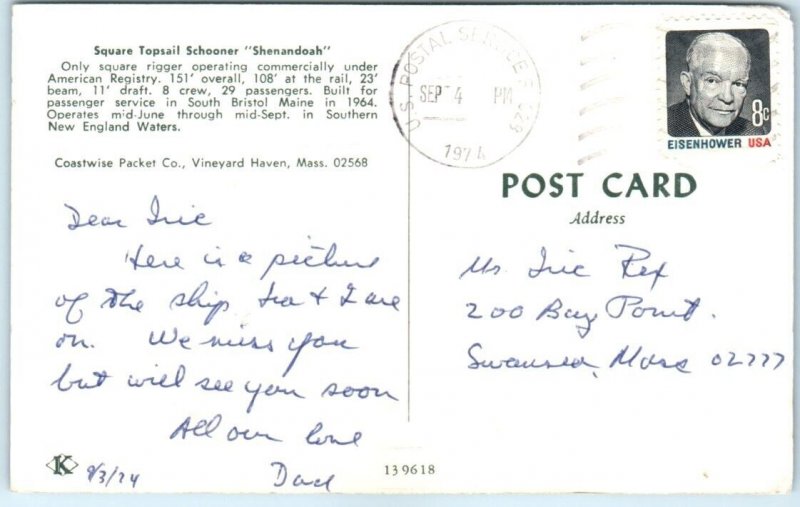 Square Topsail Schooner "Shenandoah"
Only square rigger operating commercially under
American Registry. 151' overall, 108' at the rail, 23'
beam, 11' draft. 8 crew, 29 passengers. Built for
passenger service in South Bristol Maine in 1964.
Operates mid-June through mid-Sept. in Southern
New England Waters.
Coastwise Packet Co., Vineyard Haven, Mass. 02568
Dear
Here is a picture
of the ship & I are
on. We miss you
but will see you soon
All our love
Dad
K
9/3/74
139618
U.S. POSTAL SERVICE
SEP 4 PM
1974
8c
EISENHOWER USA
POST CARD
Address
Rex
200 Bay Point.
Swansea, Mass 02777